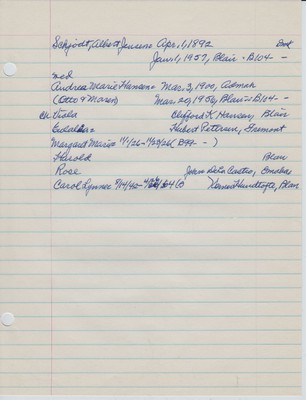 Schjodt, Albert Jensens Apr. 1, 1892 Dook
Jan. 1, 1957, Blair - B104 -
md
Andrea Marie Hansen - Mar. 3, 1900, Admah
(Otto & Maren) Mar. 29, 1956, Blair - B104 -
Ch: Viola Clifford K. Hansen, Blair
Eudalka Hubert Petersen, Fremont
Margaret Marie 11/1/26 - 11/25/26 ( - )
Harold Blair
Rose John DeLa Castro, Omaha
Carol Lynnee Blair